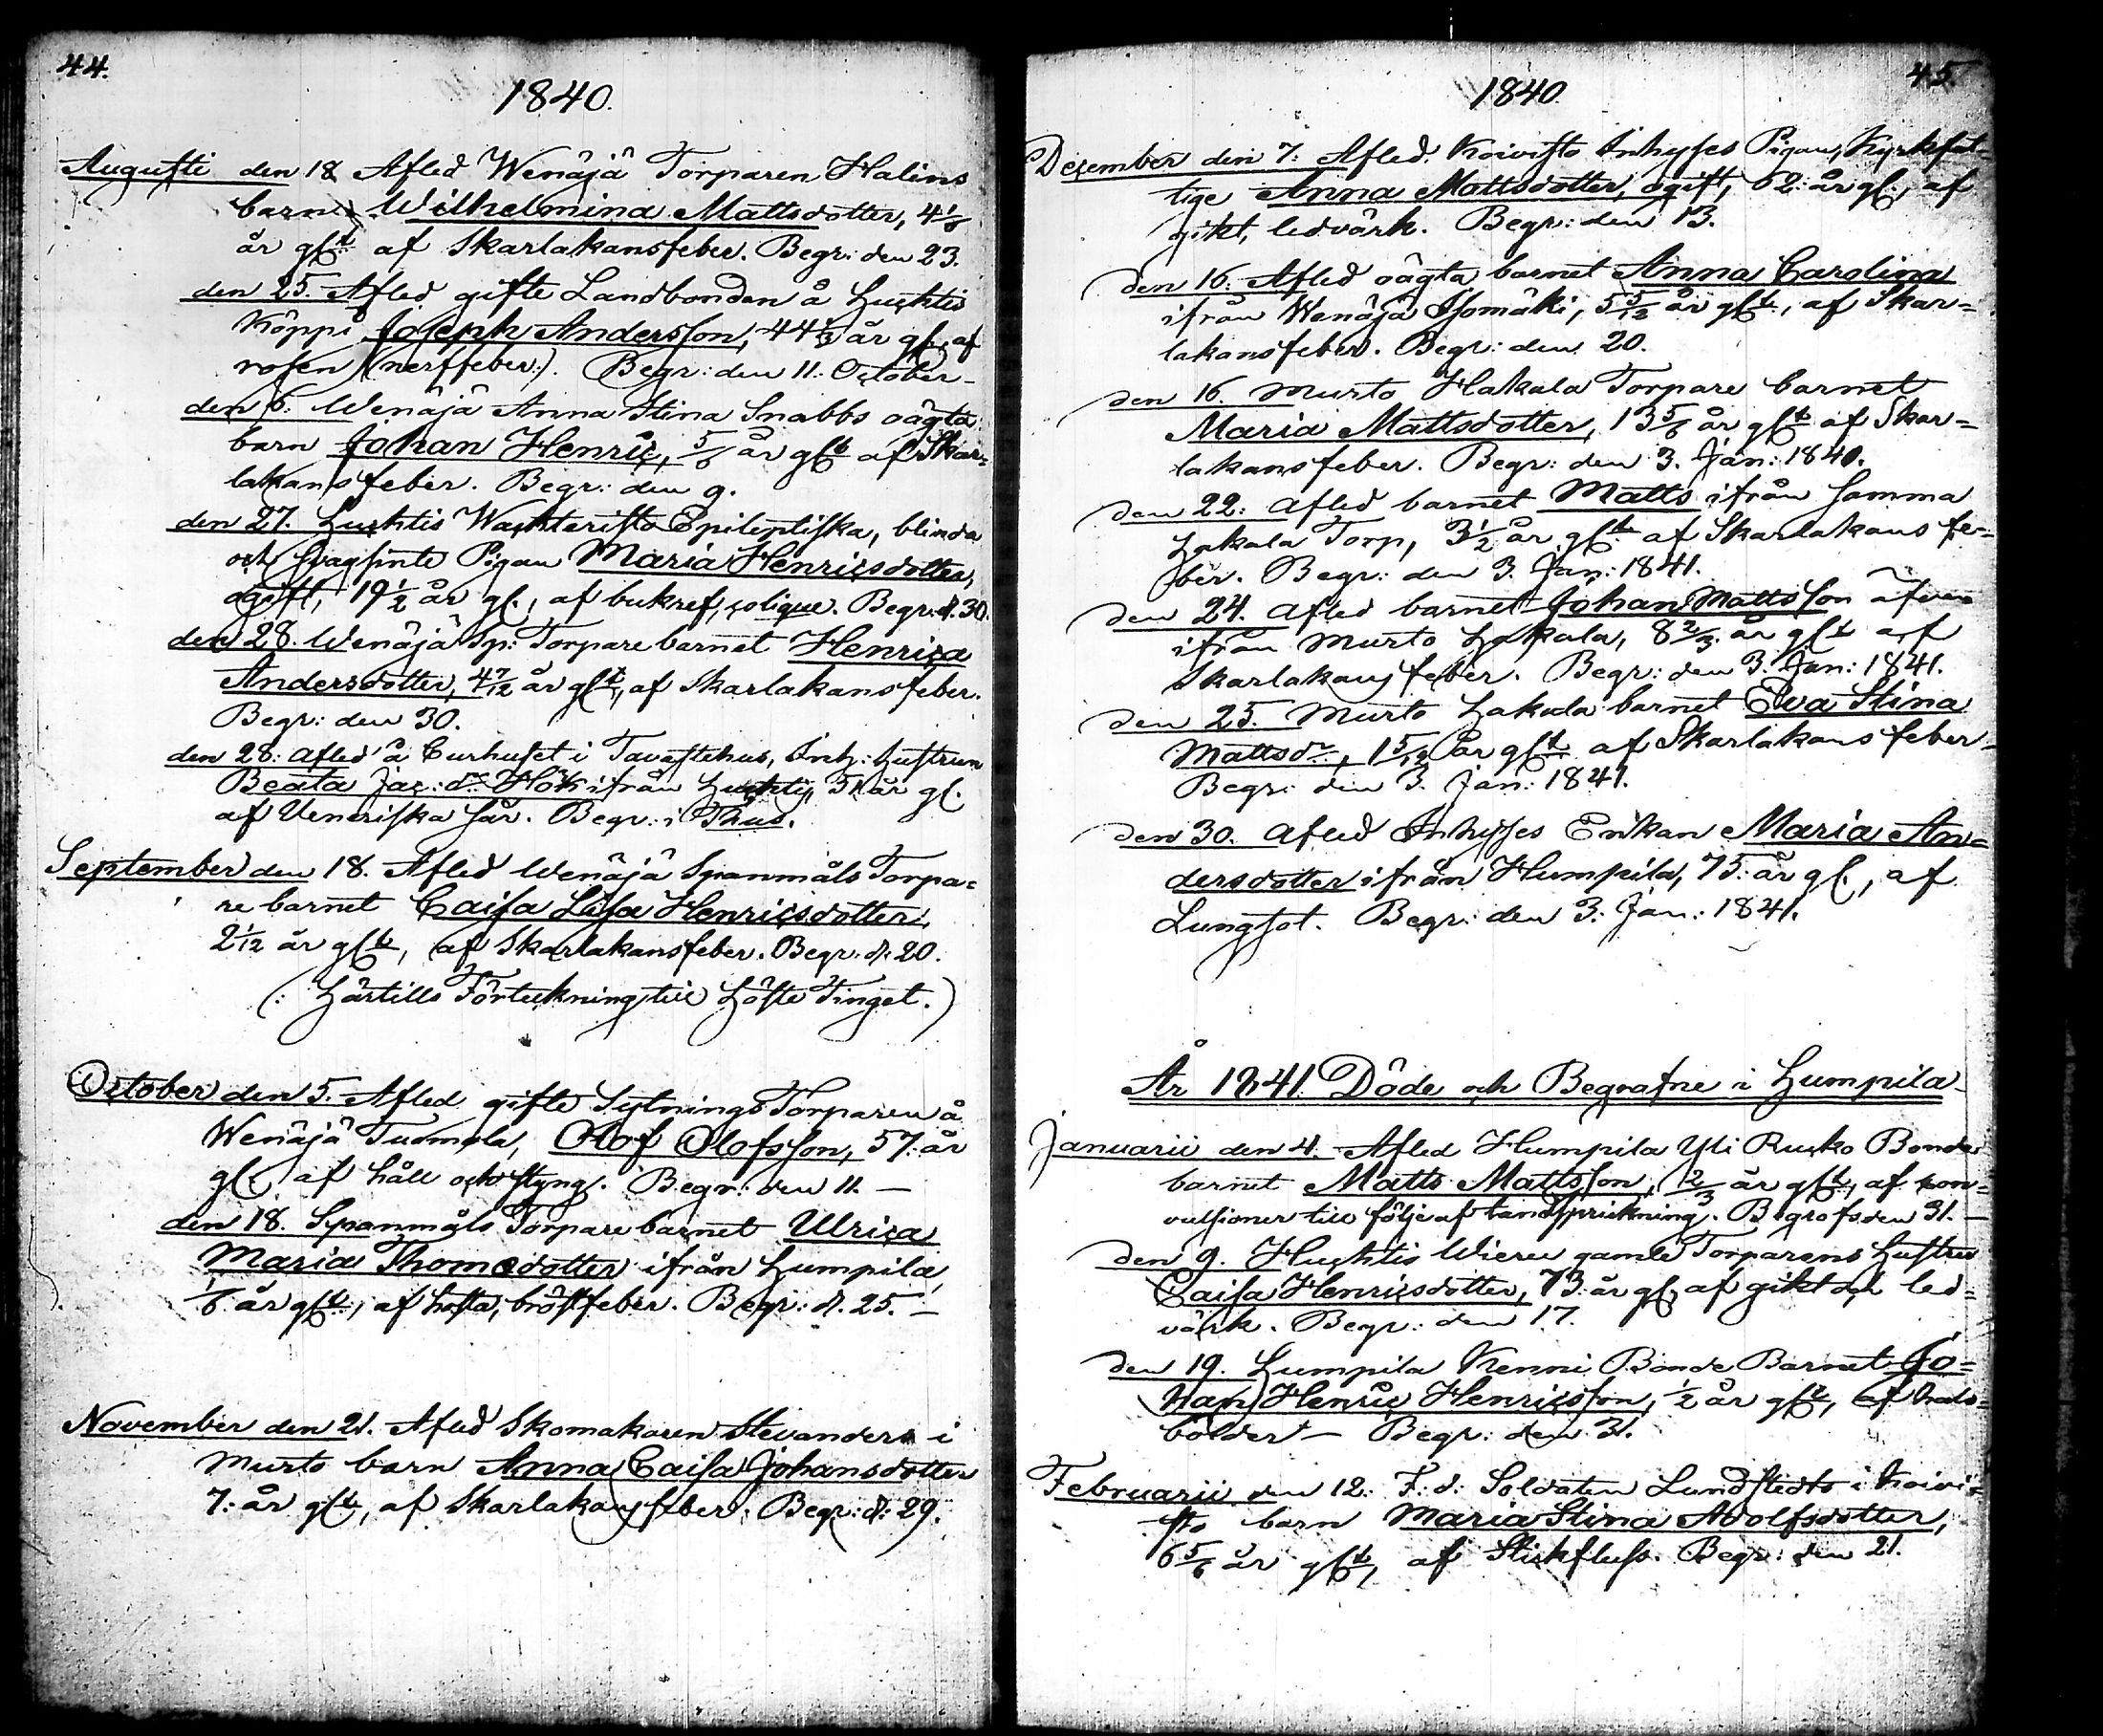 44.
1840.
Augusti den 18 Afled Wenäjä Torparen Halins
barn Wilhelmina Mattsdotter, 4 1/6
år glt af Skarlakansfeber. Begr: den 23.
den 25. Afled gifte Landbonden å Huhtis
Köppi Joseph Andersson, 44 1/3 år gl. af
rosen (nerffeber). Begr: den 11. October
den 6. Wenäjä Anna Stina Snabbs oägta
barn Johan Henric, 5/6 år glt af Skar=
lakansfeber. Begr: den 9.
den 27. Huhtis Wachteristo Epileptiska, blinda
och svagsinte Pigan Maria Henricsdotter,
ogift, 19 1/2 år gl., af bukref, colique. Begr. d. 30.
den 28. Wenäjä Sp: Torpare barnet Henrica
Andersdotter, 4 7/12 år glt, af Skarlakansfeber.
Begr: den 30.
den 28: Afled å Curhuset i Tavastehus, Inh: Hustrun
Beata Jac: dr Hök ifrån Huhtis, 31 år gl.
af Veneriska sår. Begr: i Thus.
September den 18. Afled Wenäjä Spanmåls Torpa=
re barnet Caisa Lisa Henricsdotter,
2 1/12 år glt, af Skarlakansfeber. Begr. d. 20.
(: Härtills Förteckning till Höste Tinget.)
October den 5. Afled gifte Sytnings Torparen å
Wenäjä Tuomola, Olof Olofsson, 57: år
gl. af håll och styng. Begr: den 11. —
den 18. Spanmåls Torpare barnet Ulrica
Maria Thomedotter ifrån Humpila,
1/6 år glt, af hosta, bröstfeber. Begr: d. 25. —
November den 21. Afled Skomakaren Stevanders i
Murto barn Anna Caisa Johansdotter
7: år glt, af Skarlakansfeber. Begr: d: 29.
45.
1840.
December den 7: Afled. Koivisto Inhyses Pigan, Kyrkfat=
tige Anna Mattsdotter, ogift, 62: år gl., af
gikt, ledvärk. Begr: den 13.
den 16. Afled oägta barnet Anna Carolina
ifrån Wenäjä Isomäki, 5 5/12 år glt., af Skar=
lakansfeber. Begr: den 20.
den 16. Murto Hakala Torpare barnet
Maria Mattsdotter, 13 5/6 år glt af Skar=
lakansfeber. Begr: den 3. Jan: 1840.
den 22: Afled barnet Matts ifrån samma
Hakala Torp, 3 1/2 år glt af Skarlakans fe=
ber. Begr: den 3. Jan: 1841.
den 24. Afled barnet Johan Mattsson äfven
ifrån Murto Hakala, 8 2/3 år glt af
Skarlakansfeber. Begr: den 3. Jan: 1841.
den 25. Murto Hakala barnet Eva Stina
Mattsdr, 1 5/12 år glt af Skarlakans feber
Begr: den 3. Jan: 1841.
den 30. Afled Inhyses Enkan Maria An=
dersdotter ifrån Humpila, 75: år gl., af
Lungsot. Begr: den 3: Jan: 1841.
År 1841. Döde och Begrafne i Humpila
Januarii den 4. Afled Humpila Yli Rusko Bonde
barnet Matts Mattsson, 2/3 år glt, af kon=
vulsioner till följe af tandsprickning. Begrofs den 31. —
den 9. Huhtis Wieru gamle Torparens Hustru
Caisa Henricsdotter, 73: år gl. af gikt och led=
värk. Begr: den 17.
den 19. Humpila Kenni Bonde Barnet Jo=
han Henric Henricsson, 1/2 år glt, af hals=
bölder — Begr: den 31.
Februarii den 12. F: d: Soldaten Lundstedts i Koivi=
sto barn Maria Stina Adolfsdotter,
6 5/6 år glt, af Stickfluss. Begr: den 21.